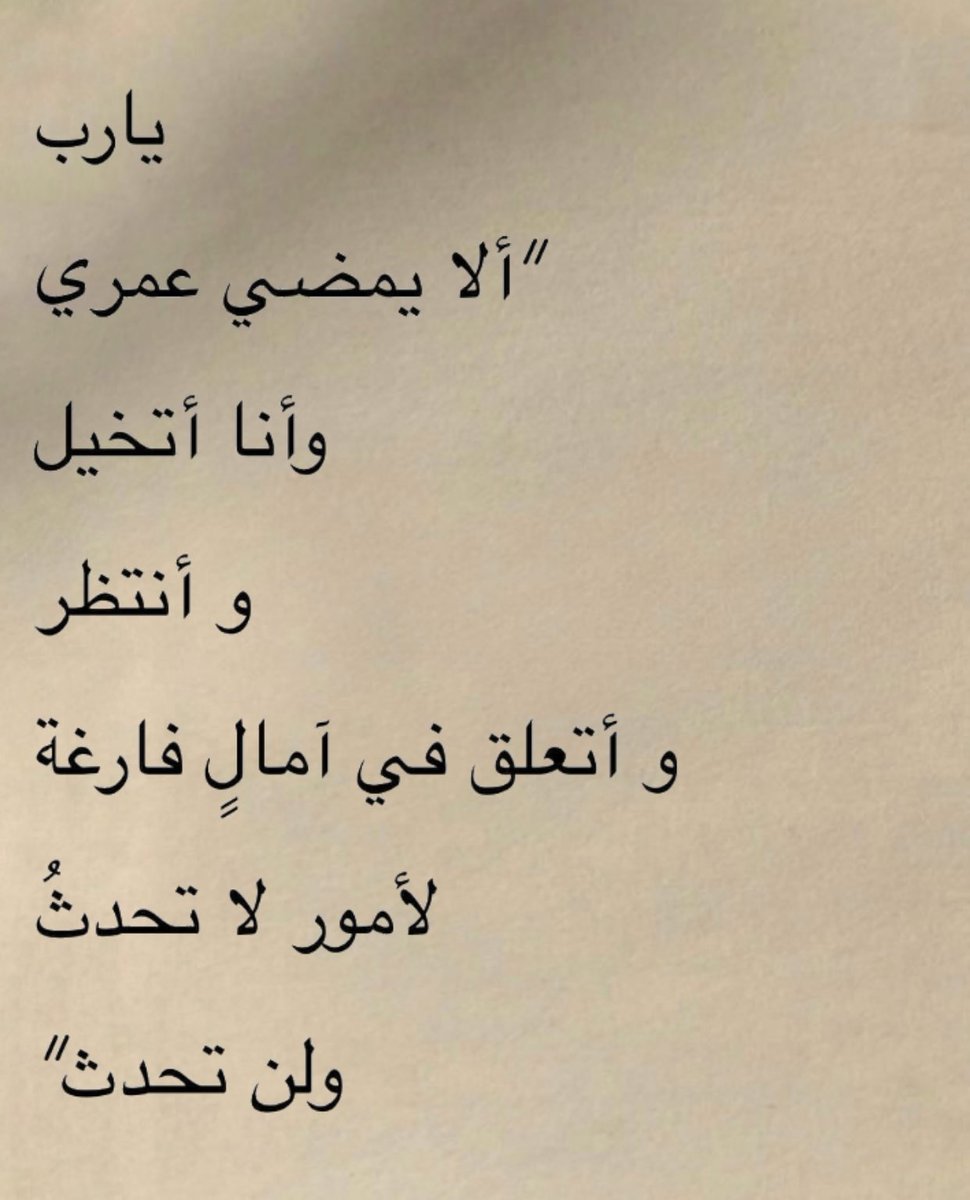 يارب
"ألا يمضي عمري
وأنا أتخيل
و أنتظر
و أتعلق في آمالٍ فارغة
لأمور لا تحدثُ
ولن تحدث"